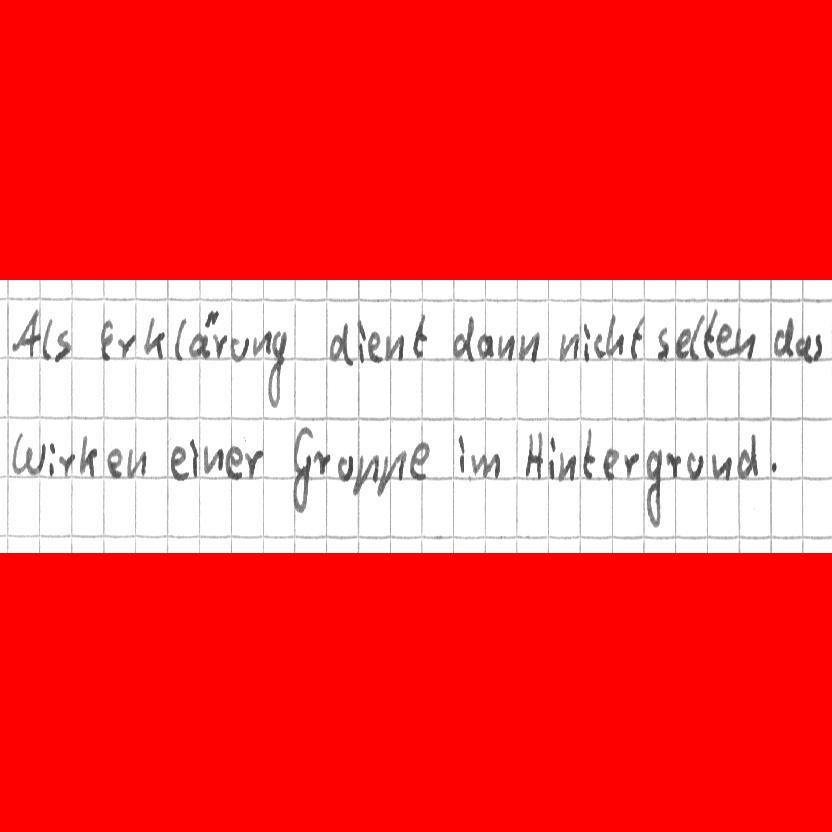 Als Erklärung dient dann nicht selten das
Wirken einer Gruppe im Hintergrund.